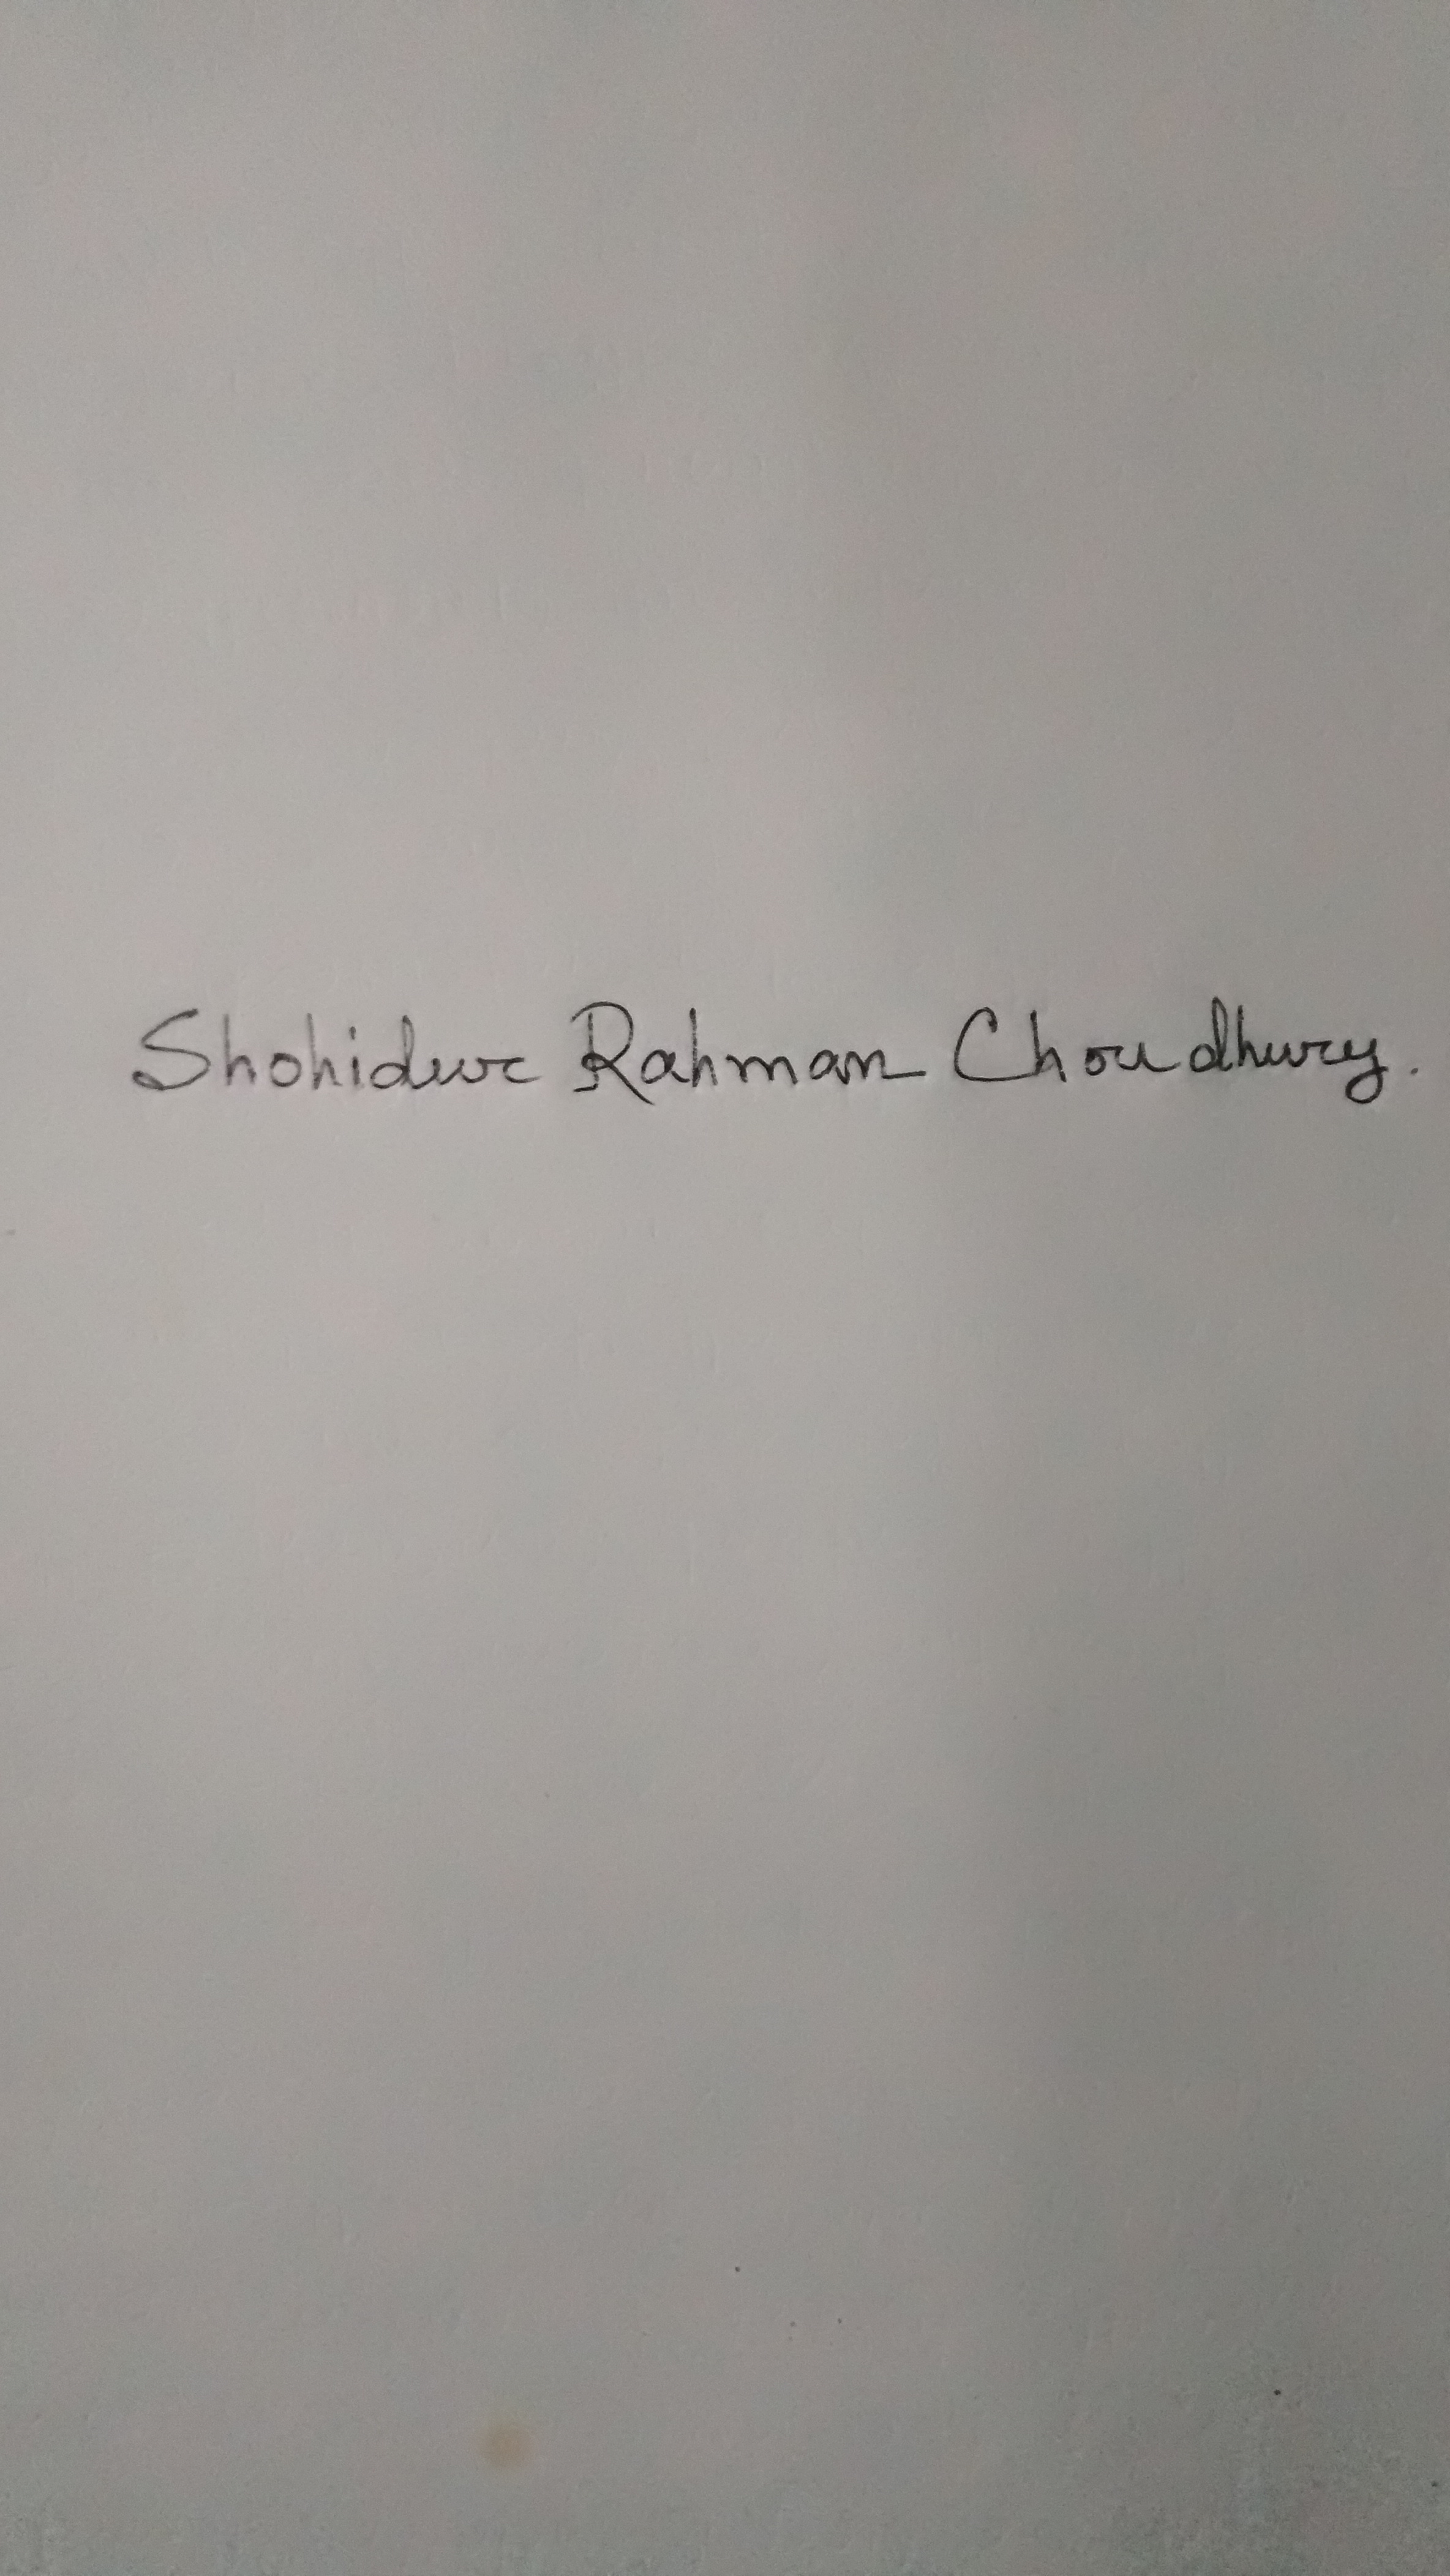 Shohidur Rahman Choudhury.